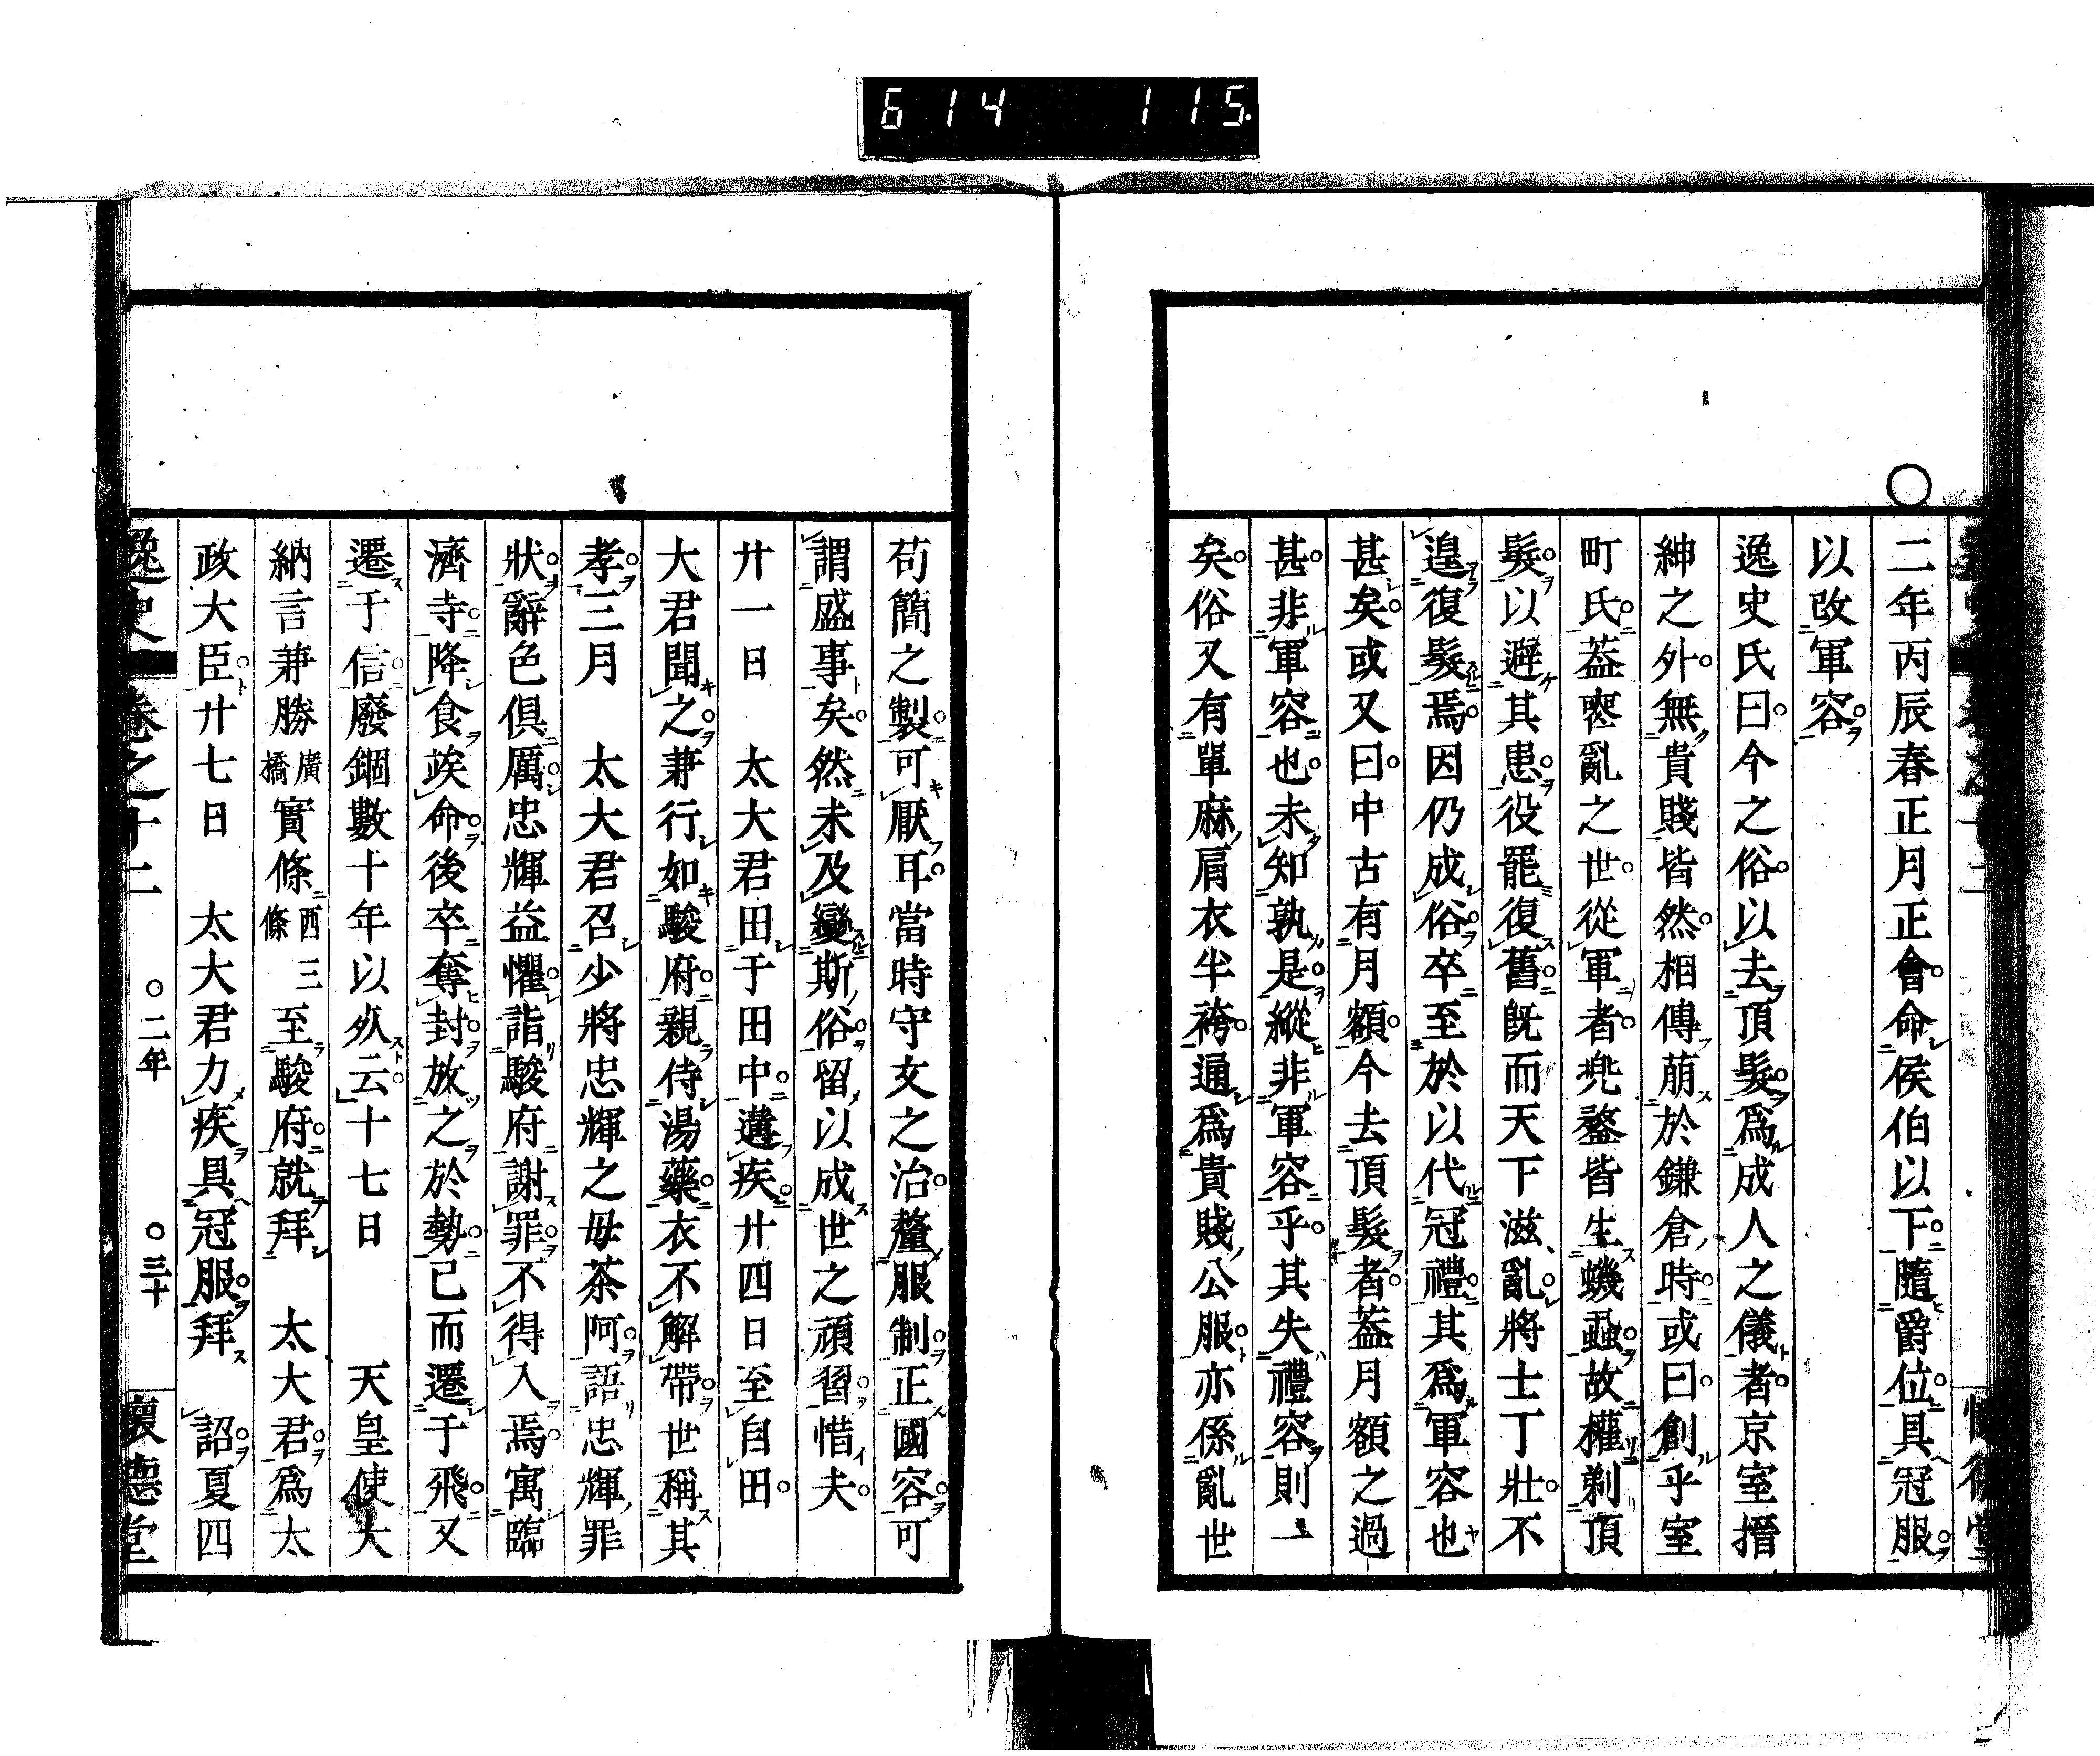 614 115.
○二年丙辰春正月正會命侯伯以下隨爵位具冠服
以改軍容
逸史氏曰今之俗以去頂髮爲成人之儀者京室搢
紳之外無貴賤皆然相傳萠於鎌倉時或曰創乎室
町氏葢喪亂之世從軍者兠鍪皆生蟣蝨故權剃頂
髮以避其患役罷復舊旣而天下滋亂將士丁壯不
遑復髮焉因仍成俗卒至於以代冠禮其爲軍容也
甚矣或又曰中古有月額今去頂髮者葢月額之過
甚非軍容也未知孰是縱非軍容乎其失禮容則一
矣俗又有單麻肩衣半袴通爲貴賤公服亦係亂世
苟簡之製可厭耳當時守文之治釐服制正國容可
謂盛事矣然未及變斯俗留以成世之頑習惜夫
廿一日 太大君田于田中遘疾廿四日至自田
大君聞之兼行如駿府親侍湯藥衣不解帶世稱其
孝三月 太大君召少將忠輝之母茶阿語忠輝罪
狀辭色俱厲忠輝益懼詣駿府謝罪不得入焉寓臨
濟寺降食竢命後卒奪封放之於勢已而遷于飛又
遷于信廢錮數十年以死云十七日 天皇使大
納言兼勝廣橋實條西三條至駿府就拜 太大君爲太
政大臣廿七日 太大君力疾具冠服拜 詔夏四
逸史 卷之十二 ○二年 ○三十 懷德堂